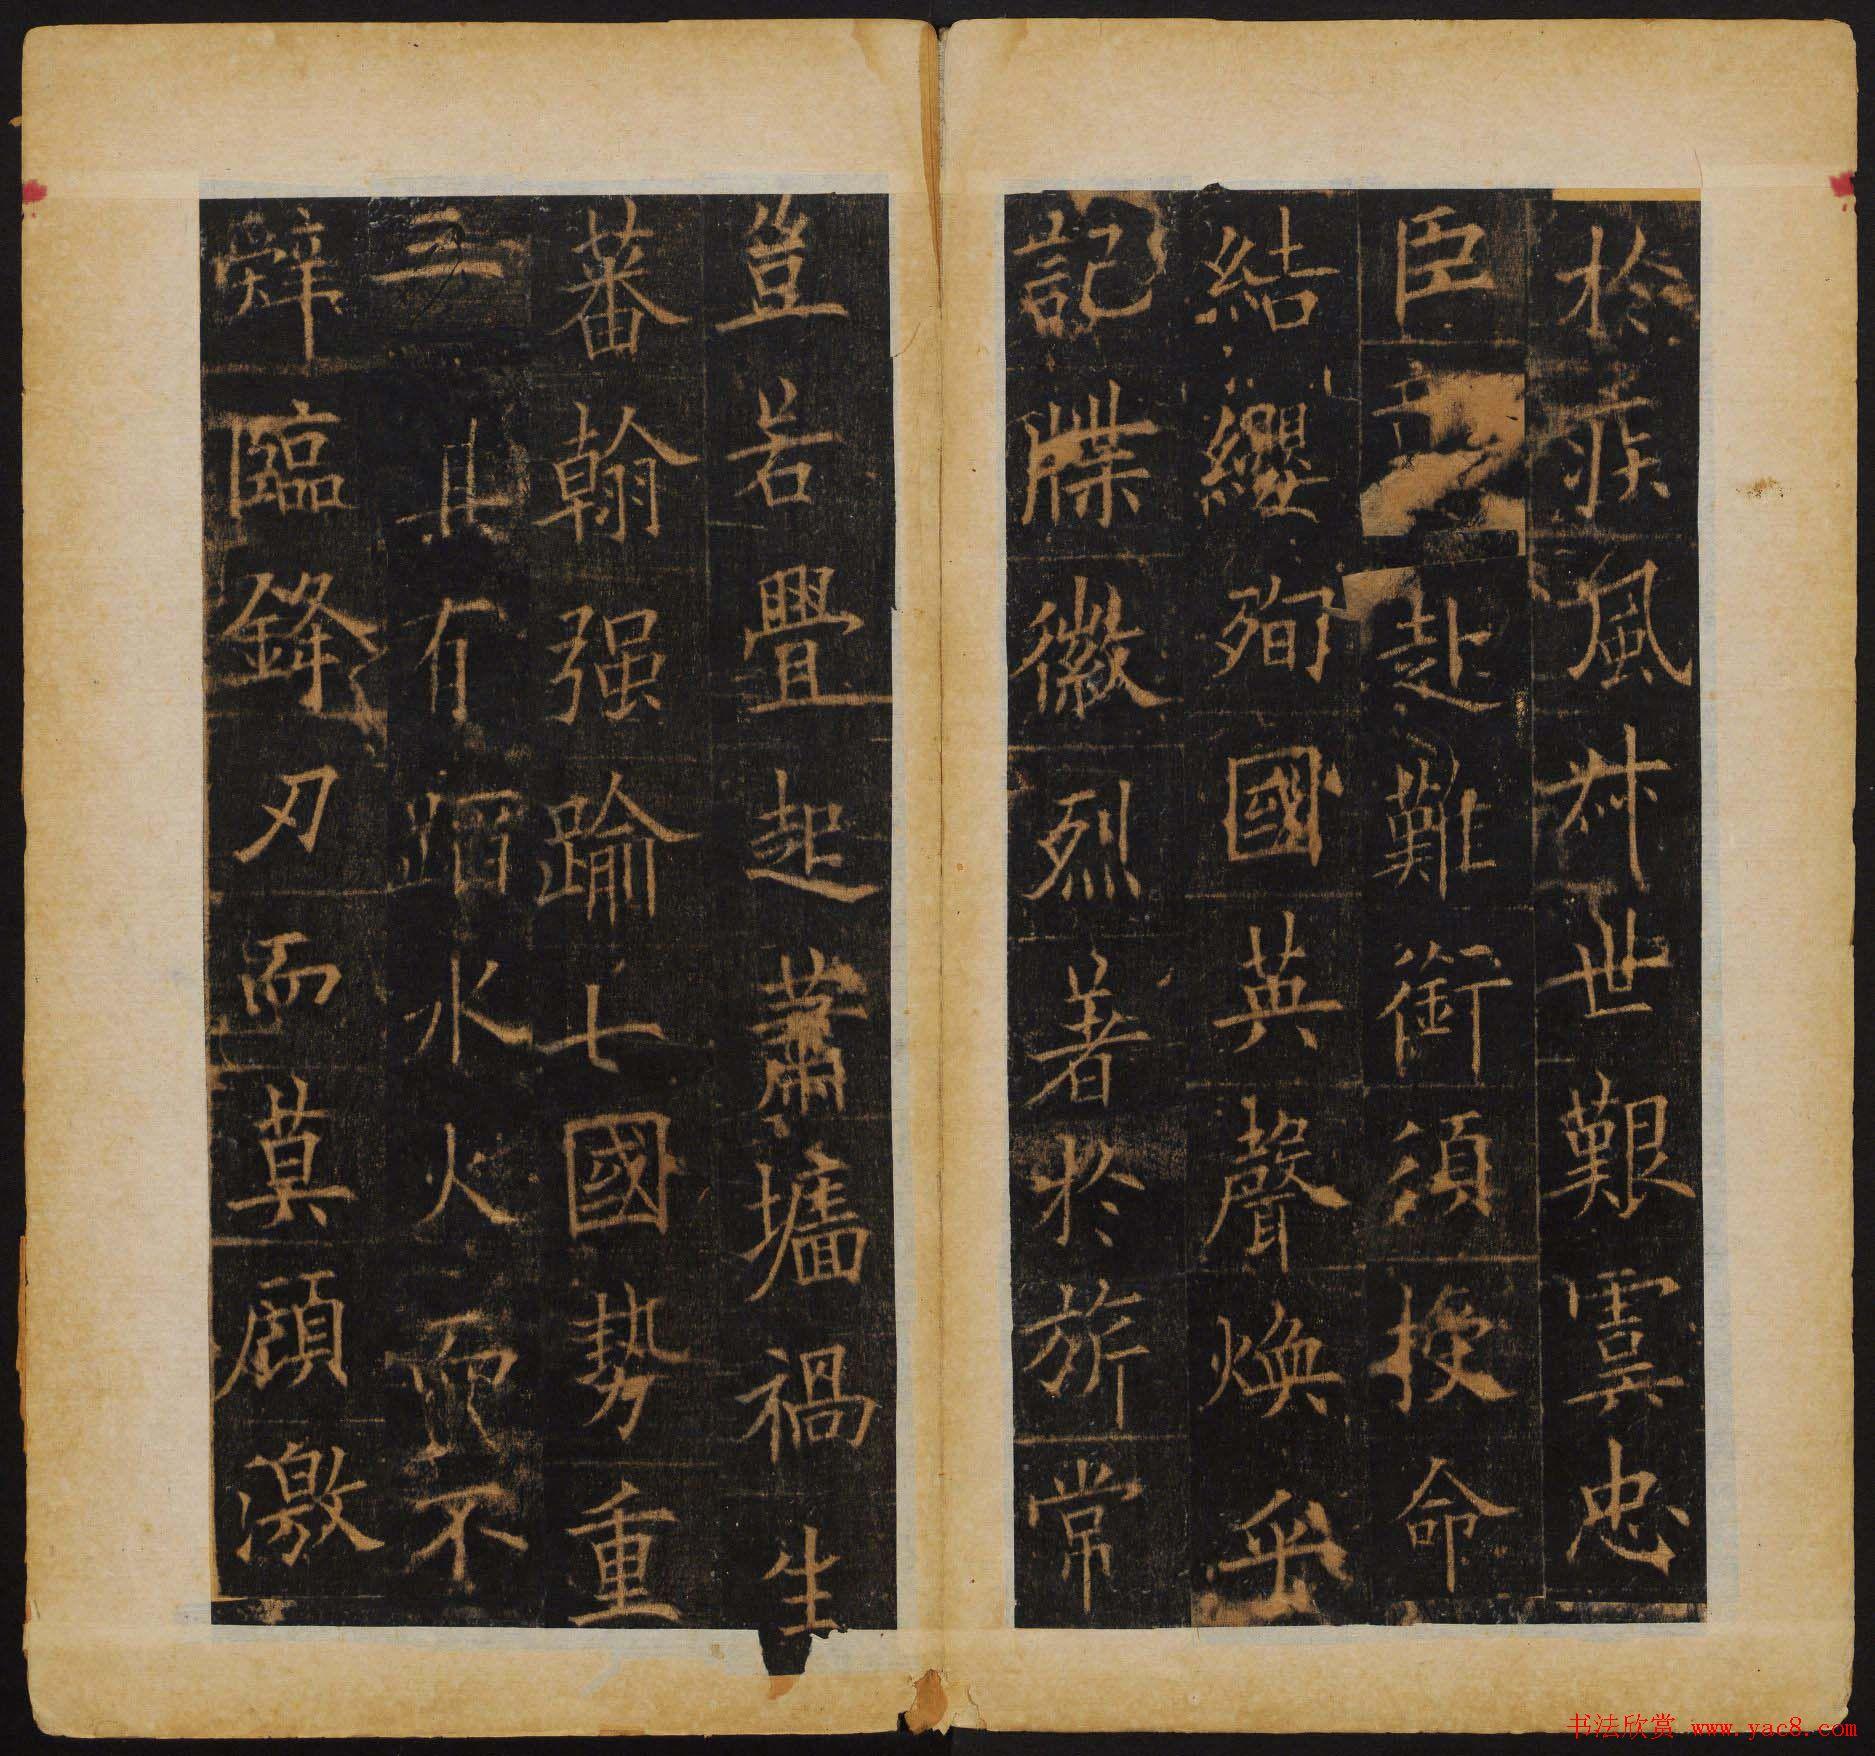 於疾風叔世艱虞忠
臣赴難銜須授命
結纓殉國英聲煥乎
記牒徽烈著於旂常
豈若舋起蕭墻禍生
蕃翰强踰七國勢重
三其有蹈水火而不
辤臨鋒刃而莫顧激
书法欣赏 www.yac8.com